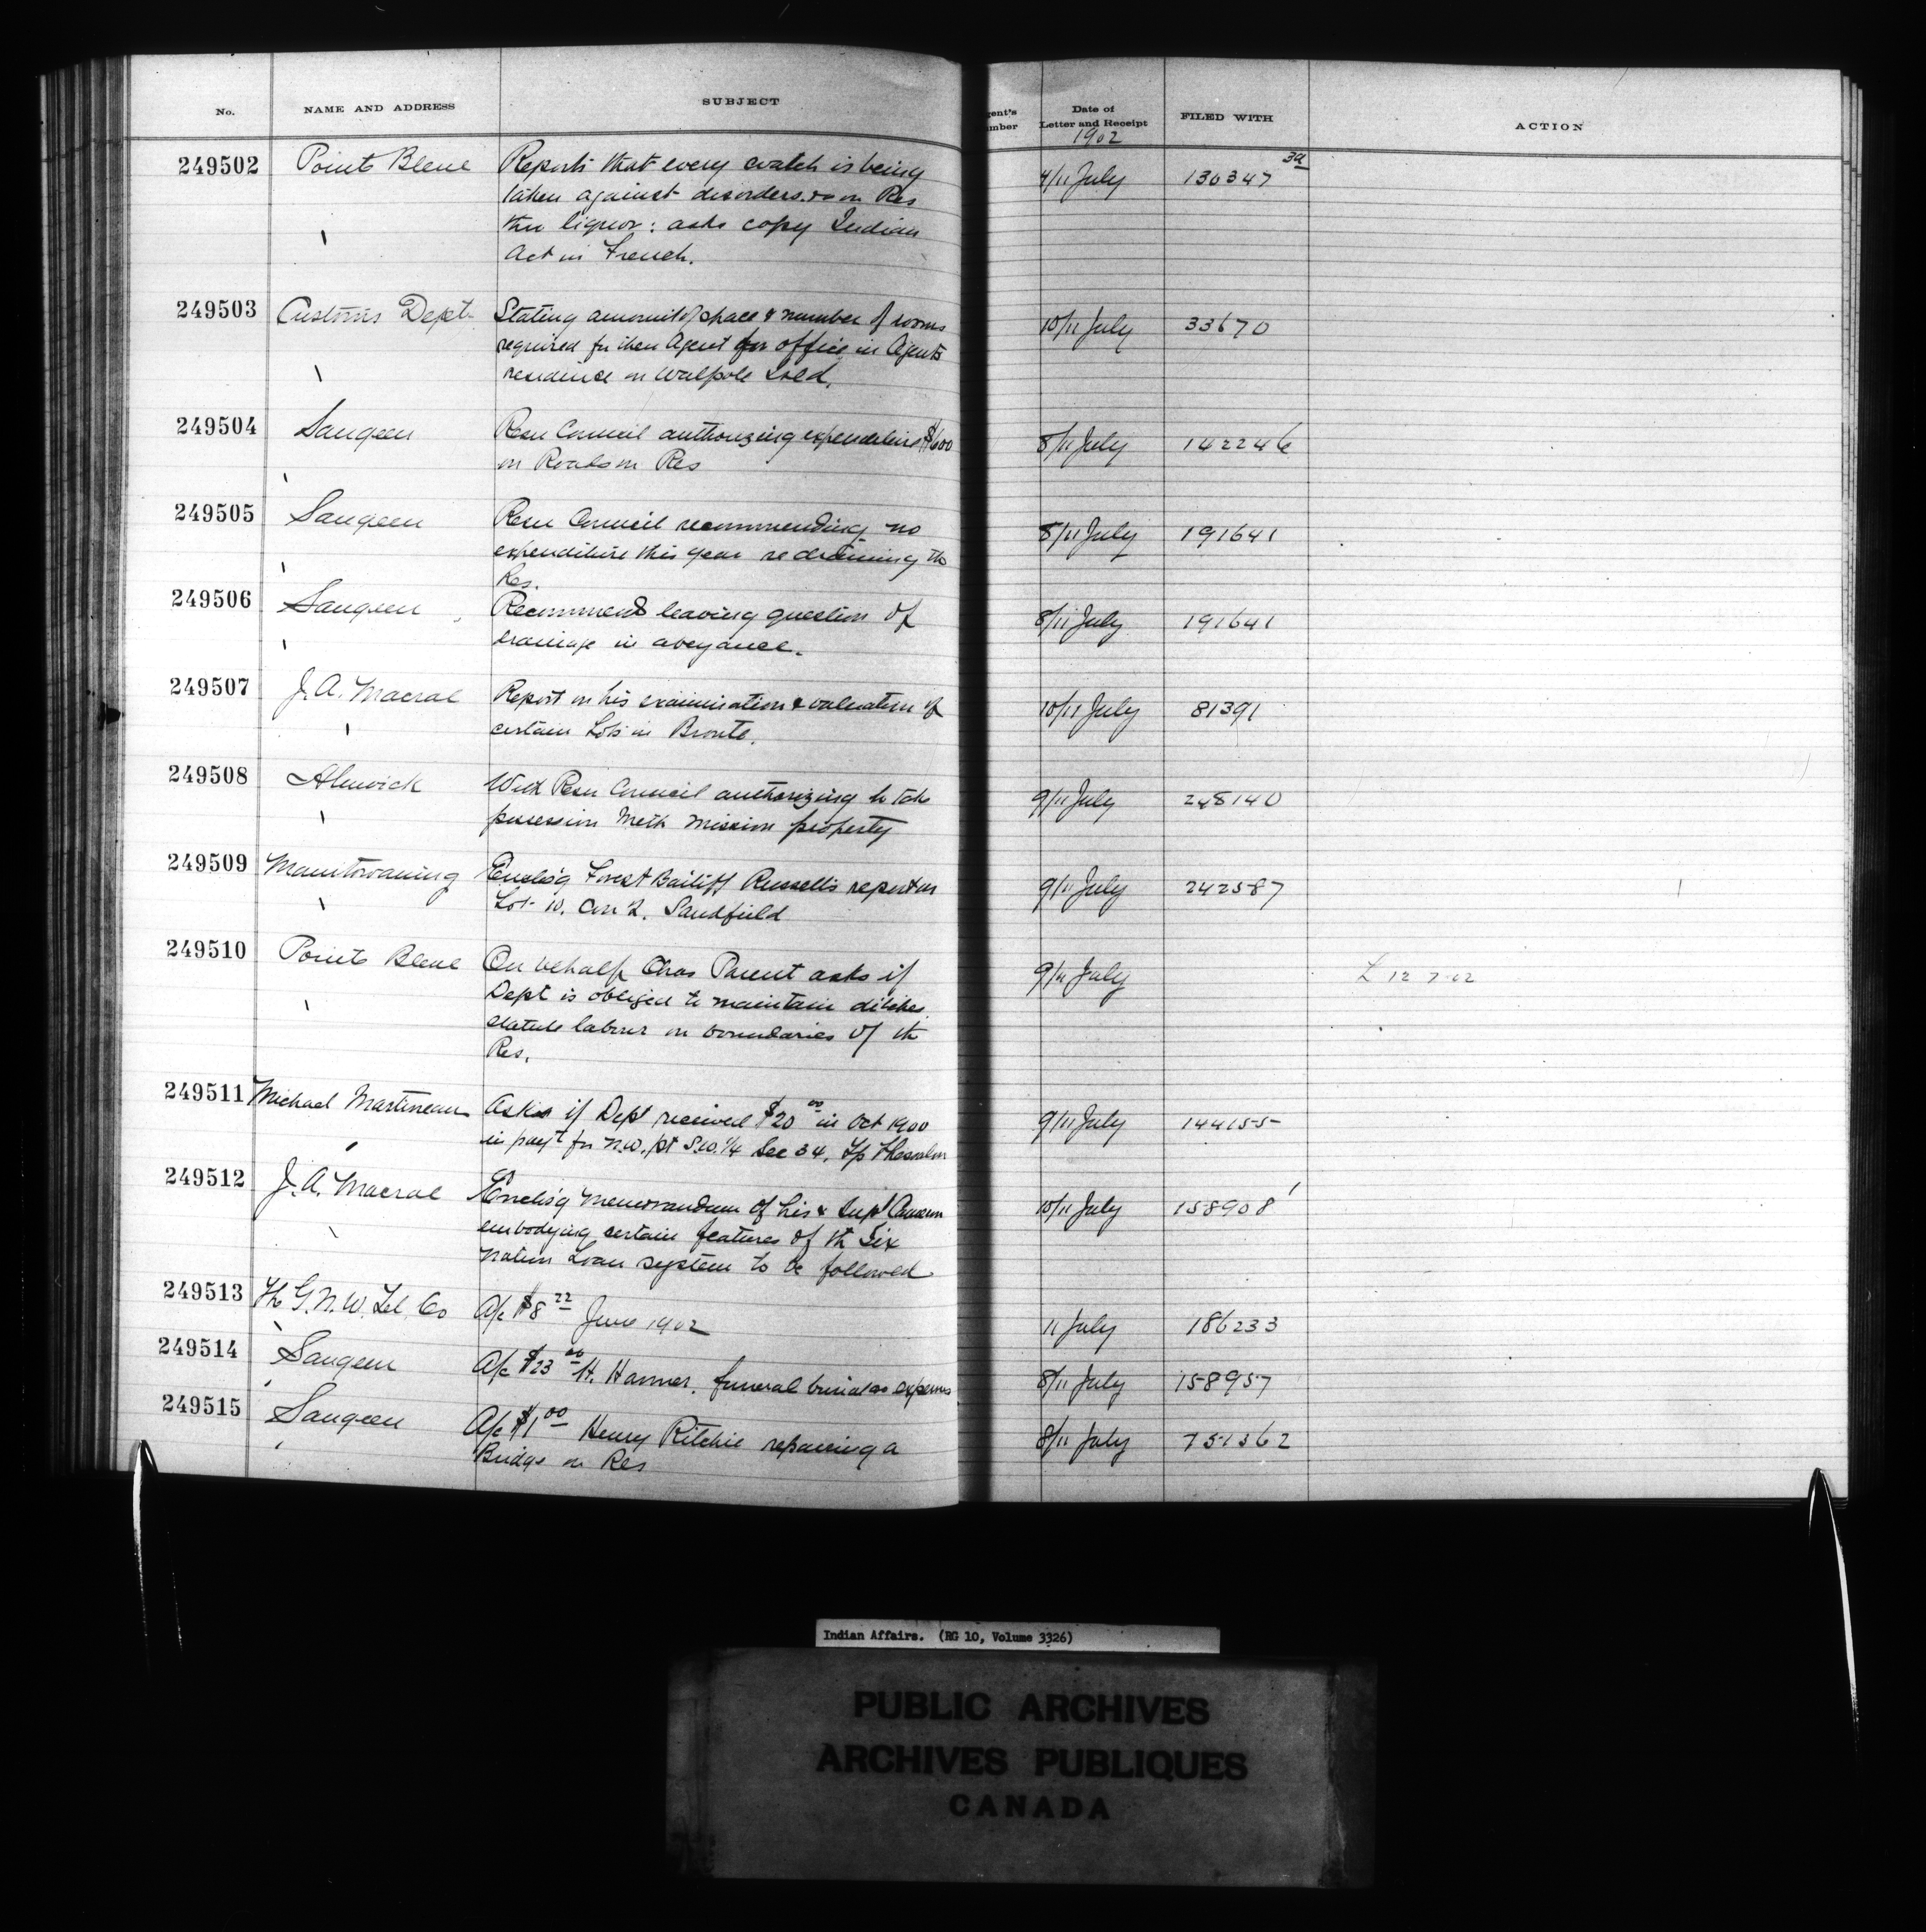 No. NAME AND ADDRESS SUBJECT gent's mber Date of Letter and Receipt FILED WITH ACTION
1902
249502 Pointe Bleue Reports that every watch is being 4/11 July 130347 3a
taken against disorders on Res
thru liquor: asks copy Indian
Act in French.
249503 Customs Dept Stating amount of space & number of rooms 10/11 July 33670
required for their Agent for office in Agents
residence on Walpole Isld.
249504 Saugeen Resn Council authorizing expenditure $600 8/11 July 142246
on Roads on Res
249505 Saugeen Resn Council recommending no 8/11 July 191641
expenditure this year re draining the
Res.
249506 Saugeen Recommends leaving question of 8/11 July 191641
drainage in abeyance.
249507 J. A. Macrae Report on his examination & valuation of 10/11 July 81391
certain Lots in Bronte.
249508 Alnwick With Resn Council authorizing to take 9/11 July 248140
possession Meth Mission property
249509 Manitowaning Enclos'g Forest Bailiff Russell's report on 9/11 July 242587
Lot 10. Con 2. Sandfield
249510 Pointe Bleue On behalf Chas Parent asks if 9/11 July L 12 7 02
Dept is obliged to maintain ditches
statute labour on boundaries of the
Res.
249511 Michael Martineau Asks if Dept received $20 00 in Oct 1900 9/11 July 144155
in payt for N.W. pt S.W. 1/4 Sec 34, Tp Thessalon
249512 J. A. Macrae Enclos'g memorandum of his & Supt Cameron 10/11 July 158908
embodying certain features of the Six
Nation Loan system to be followed
249513 The G. N. W. Tel. Co A/c $8 22 June 1902 11 July 186233
249514 Saugeen A/c $23 00 H. Harmer, funeral burial expenses 8/11 July 158957
249515 Saugeen A/c $1 00 Henry Ritchie repairing a 8/11 July 751362
Bridge on Res
Indian Affairs. (RG 10, Volume 3326)
PUBLIC ARCHIVES
ARCHIVES PUBLIQUES
CANADA